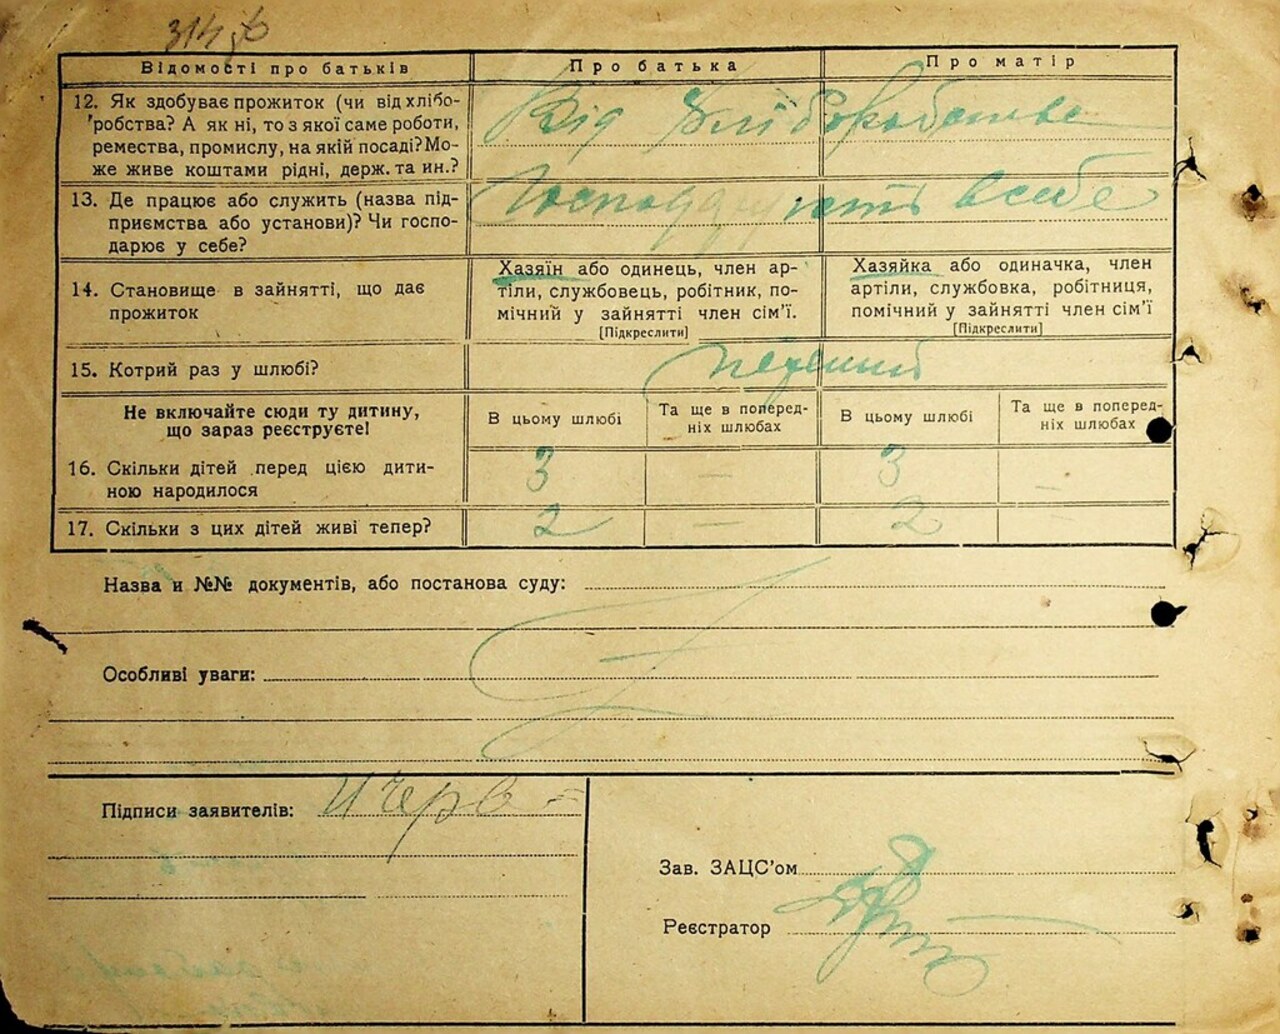 314
Відомості про батьків
Про батька
Про матір
12. Як здобуває прожиток (чи від хлібо-
робства? А як ні, то з якої саме роботи,
ремества, промислу, на якій посаді? Мо-
же живе коштами рідні, держ. та ин.?
Від хліборобства
13. Де працює або служить (назва під-
приємства або установи)? Чи госпо-
дарює у себе?
Господарюють в себе
14. Становище в зайнятті, що дає
прожиток
Хазяїн або одинець, член ар-
тіли, службовець, робітник, по-
мічний у зайнятті член сім'ї.
[Підкреслити]
Хазяйка або одиначка, член
артіли, службовка, робітниця,
помічний у зайнятті член сім'ї
[Підкреслити]
15. Котрий раз у шлюбі?
перший
Не включайте сюди ту дитину,
що зараз реєструєте!
В цьому шлюбі
Та ще в поперед-
ніх шлюбах
В цьому шлюбі
Та ще в поперед-
ніх шлюбах
16. Скільки дітей перед цією дити-
ною народилося
3 — 3 —
17. Скільки з цих дітей живі тепер?
2 — 2 —
Назва и №№ документів, або постанова суду:
Особливі уваги:
Підписи заявителів:
Зав. ЗАЦС'ом
Реєстратор